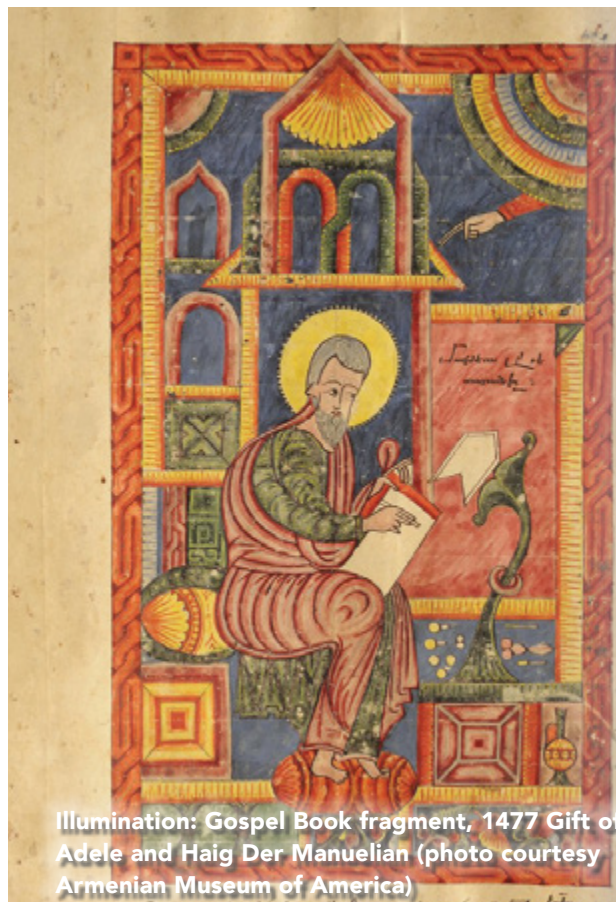 Illumination: Gospel Book fragment, 1477 Gift of
Adele and Haig Der Manuelian (photo courtesy
Armenian Museum of America)